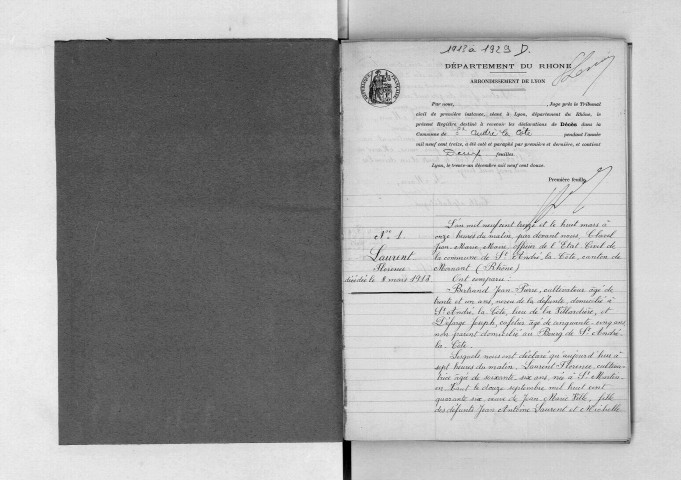 1913 à 1923 D.
DÉPARTEMENT DU RHONE
ARRONDISSEMENT DE LYON
RÉPUBLIQUE FRANÇAISE
Par nous, , Juge près le Tribunal
civil de première instance, séant à Lyon, département du Rhône, le
présent Registre destiné à recevoir les déclarations de Décès dans la
Commune de St André la Côte pendant l'année
mil neuf cent treize, a été coté et paraphé par première et dernière, et contient
feuilles
Lyon, le trente-un décembre mil neuf cent douze.
Première feuille
L'an mil neuf cent treize et le huit mars à
onze heures du matin, par devant nous, Clavel
Jean Marie, Maire officier de l'Etat Civil de
la commune de St André, la Côte, canton de
Mornant (Rhône)
N° 1.
Laurent
Florence
décédée le 8 mars 1913
Ont comparu
Bertrand Jean Pierre, cultivateur âgé de
trente et un ans, neveu de la défunte, domicilié à
St André, la Côte, lieu de la Villardière, et
Joseph, cafetier âgé de cinquante ans,
non parent domicilié au Bourg de St André
la Côte.
Lesquels nous ont déclaré qu'aujourd'hui à
sept heures du matin, Laurent Florence, cultiva-
trice âgée de soixante six ans, née à St Martin
en Haut le douze septembre mil huit cent
quarante six veuve de Jean Marie Ville, fille
des défunts Jean Antoine Laurent et